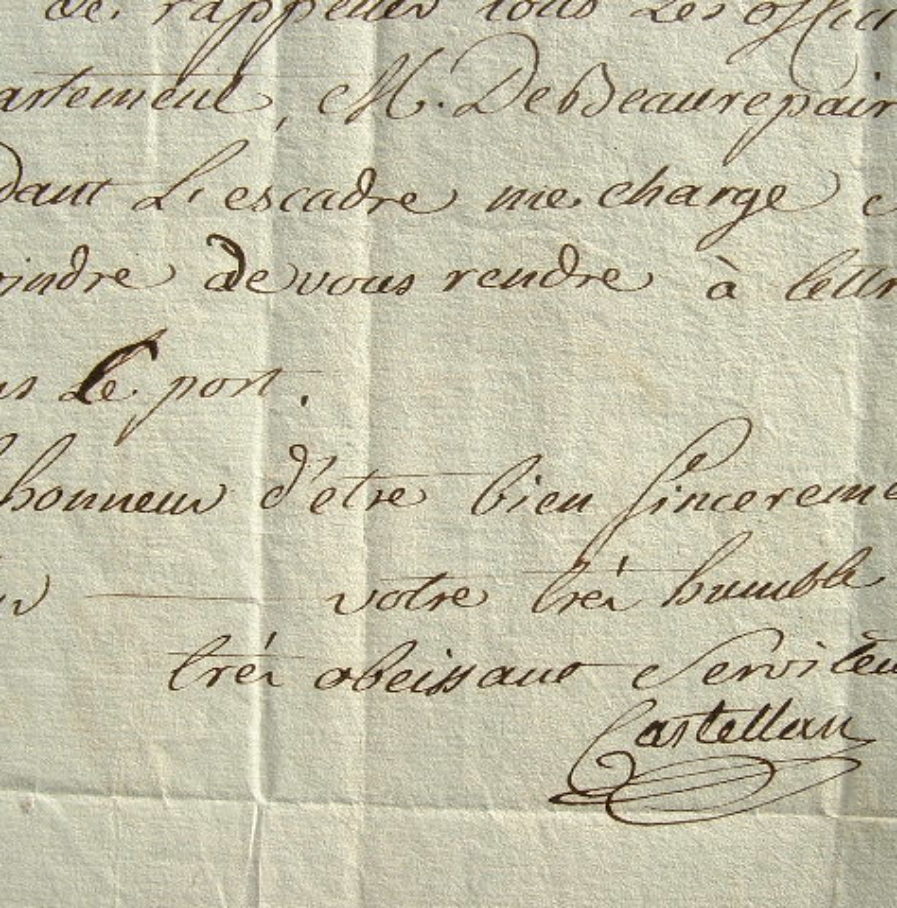 de rappeller tous Les offici
artement, M. De Beaurepair
dant L'escadre me charge
indre de vous rendre à lettr
Le port.
honneur d'etre bien sincereme
votre trés humble
trés obeissant Serviteu
Castellan